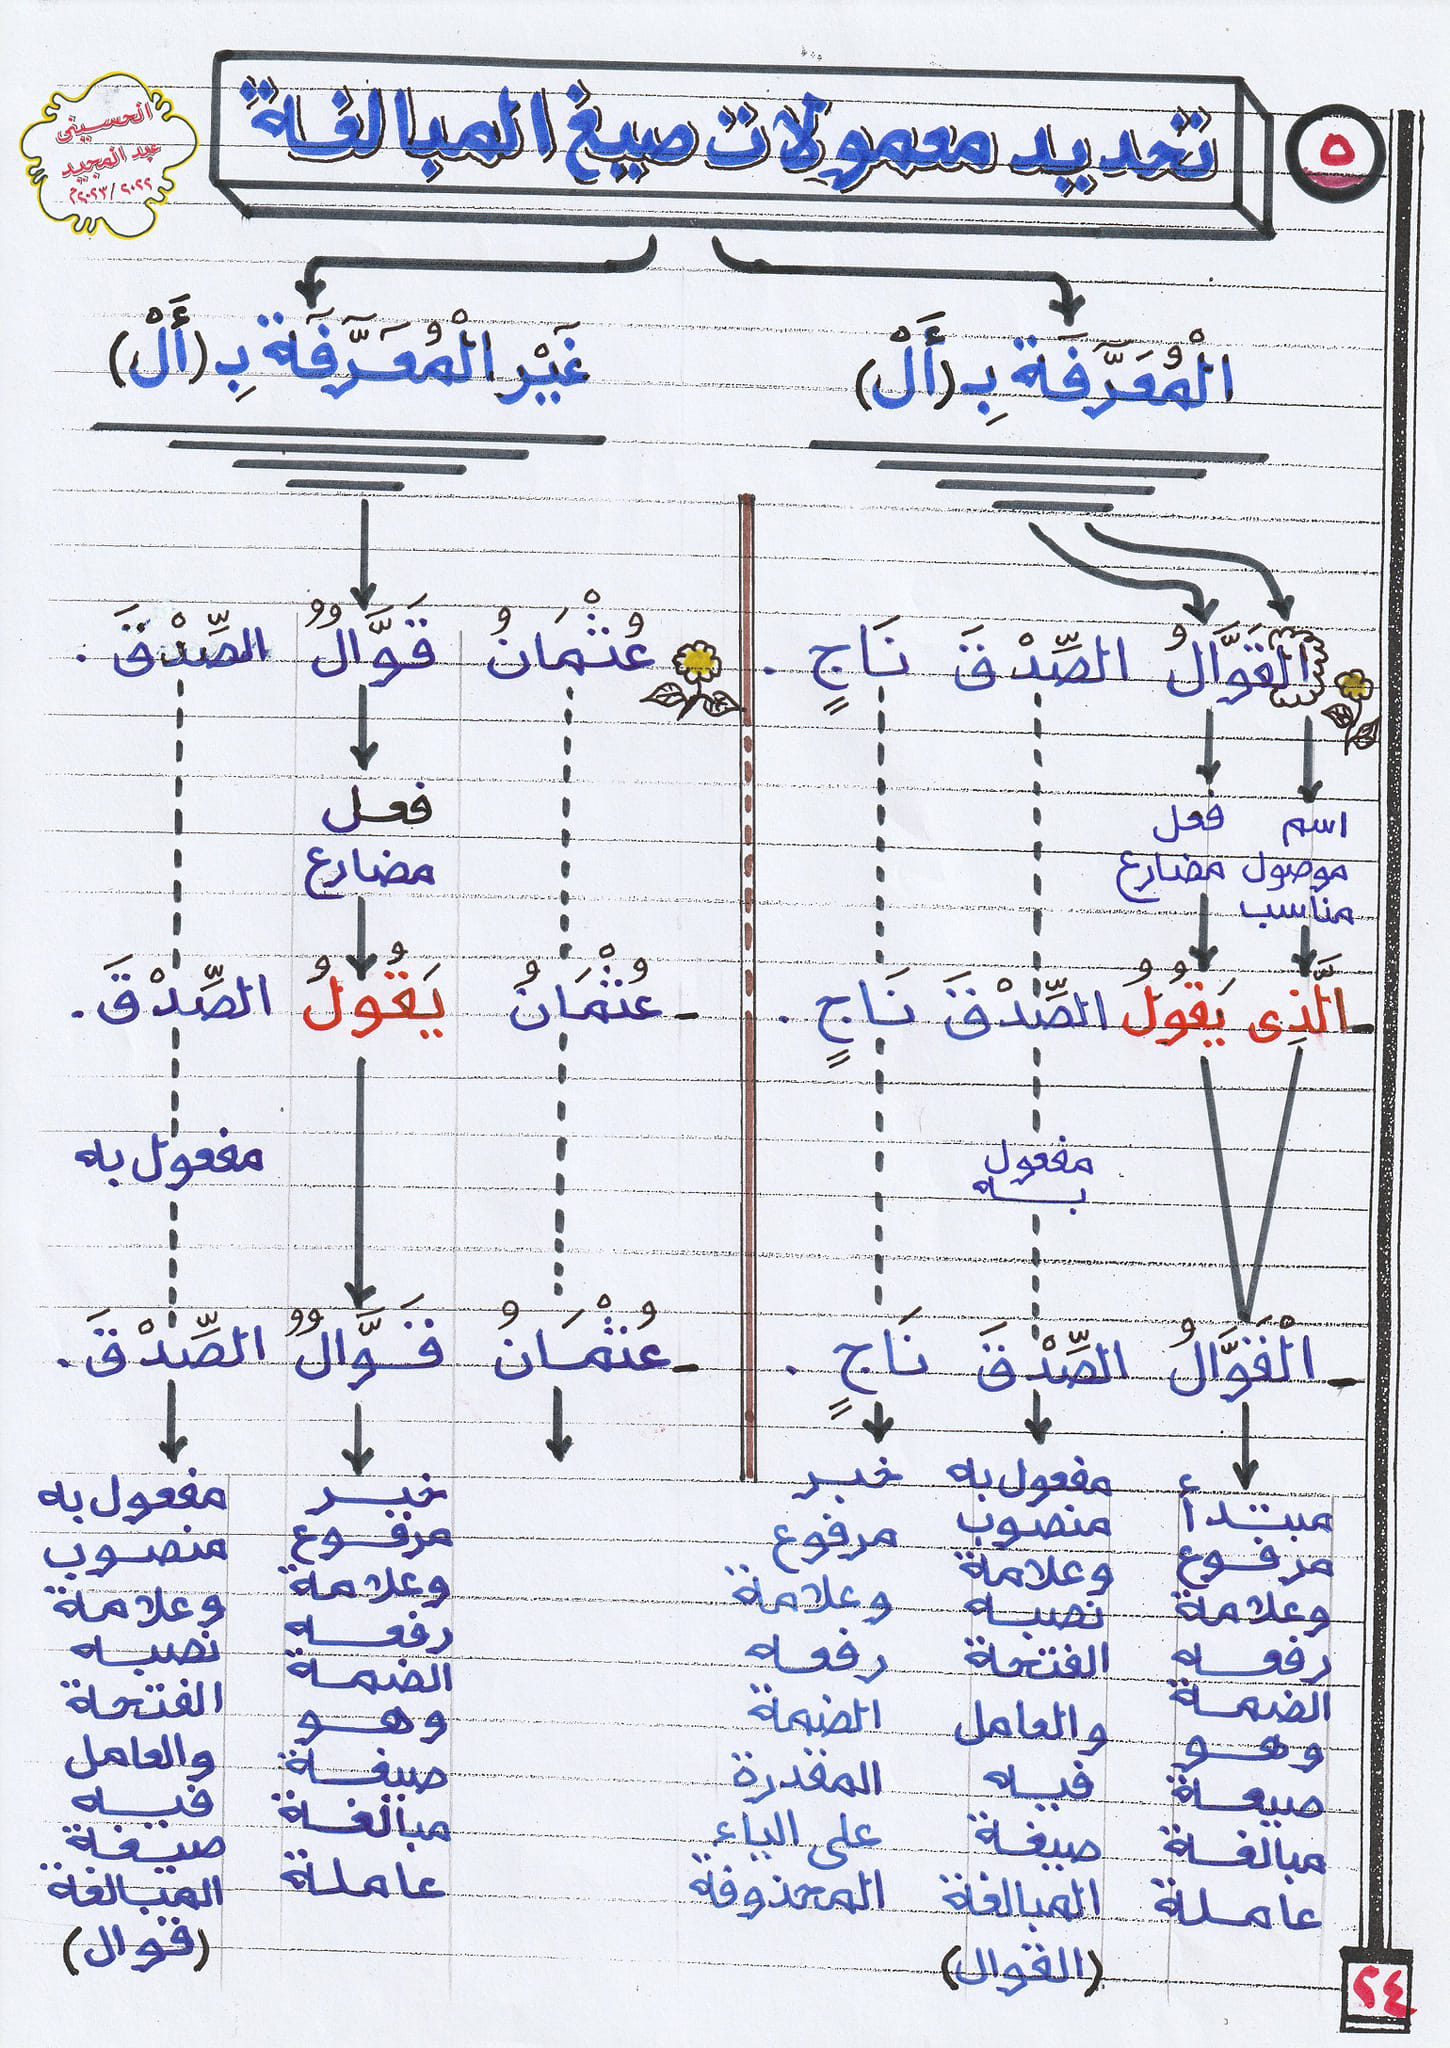 ٥
تحديد معمولات صيغ المبالغة
الحسيني
عبد المجيد
٢٠٢٢/٢٠٢٣م
الْمُعَرَّفَة بِـ (أَلْ)
غَيْر الْمُعَرَّفَة بِـ (أَلْ)
القَوَّالُ الصِّدْقَ نَاجٍ .
اسم موصول مناسب
فعل مضارع
- الَّذِى يَقُولُ الصِّدْقَ نَاجٍ .
مفعول به
- الْقَوَّالُ الصِّدْقَ نَاجٍ .
مبتدأ
مرفوع
وعلامة
رفعه
الضمة
وهو
صيغة
مبالغة
عاملة
مفعول به
منصوب
وعلامة
نصبه
الفتحة
والعامل
فيه
صيغة
المبالغة
(القوال)
خبر
مرفوع
وعلامة
رفعه
الضمة
المقدرة
على الياء
المحذوفة
عُثْمَانُ قَوَّالٌ الصِّدْقَ .
فعل
مضارع
- عُثْمَانُ يَقُولُ الصِّدْقَ .
مفعول به
- عُثْمَانُ قَوَّالٌ الصِّدْقَ .
خبر
مرفوع
وعلامة
رفعه
الضمة
وهو
صيغة
مبالغة
عاملة
مفعول به
منصوب
وعلامة
نصبه
الفتحة
والعامل
فيه
صيغة
المبالغة
(قوال)
٢٤